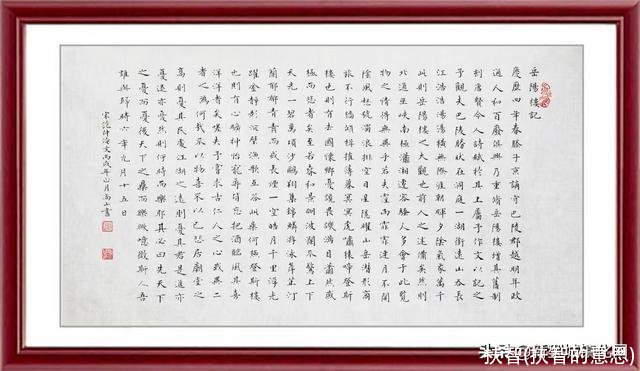 岳陽樓記
慶歷四年春滕子京謫守巴陵郡越明年政
通人和百廢俱興乃重脩岳陽樓增其舊制
刻唐賢今人詩賦於其上屬予作文以記之
予觀夫巴陵勝狀在洞庭一湖銜遠山吞長
江浩浩湯湯橫無際涯朝暉夕陰氣象萬千
此則岳陽樓之大觀也前人之述備矣然則
北通巫峽南極瀟湘遷客騷人多會于此覽
物之情得無異乎若夫霪雨霏霏連月不開
陰風怒號濁浪排空日星隱耀山岳潛形商
旅不行檣傾楫摧薄暮冥冥虎嘯猿啼登斯
樓也則有去國懷鄉憂讒畏譏滿目蕭然感
極而悲者矣至若春和景明波瀾不驚上下
天光一碧萬頃沙鷗翔集錦鱗游泳岸芷汀
蘭郁郁青青而或長煙一空皓月千里浮光
躍金靜影沉璧漁歌互答此樂何極登斯樓
也則有心曠神怡寵辱皆忘把酒臨風其喜
洋洋者矣嗟夫予嘗求古仁人之心或異二
者之為何哉不以物喜不以己悲居廟堂之
高則憂其民處江湖之遠則憂其君是進亦
憂退亦憂然則何時而樂耶其必曰先天下
之憂而憂後天下之樂而樂歟噫微斯人吾
誰與歸時六年九月十五日
宋范仲淹文丙戌年 月 山書
头条@
扶智(扶智的意思)